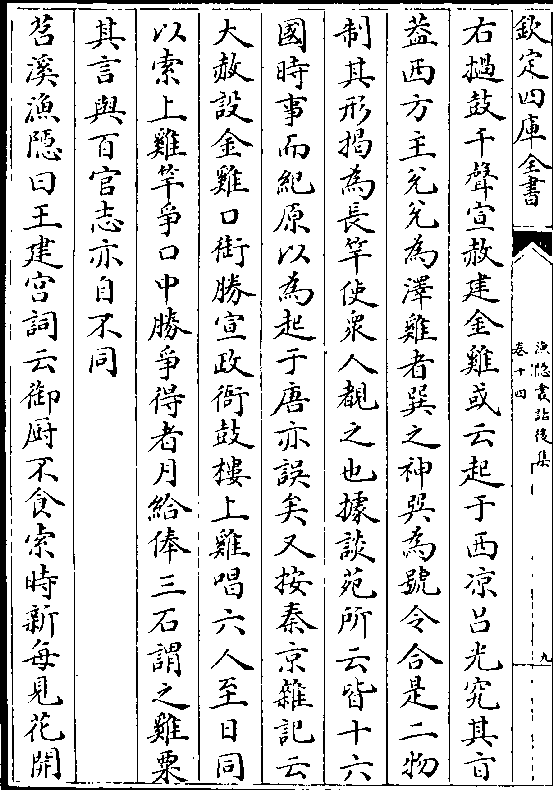 欽定四庫全書
漁隱叢話後集
卷十四
九
右撾鼓千聲宣赦建金雞或云起于西凉吕光究其㫖
葢西方主兊兊為澤雞者巽之神巽為號令合是二物
制其形揭為長竿使衆人覩之也據談苑所云皆十六
國時事而紀原以為起于唐亦誤矣又按秦京雜記云
大赦設金雞口銜勝宣政衙鼓樓上雞唱六人至日同
以索上雞竿爭口中勝爭得者月給俸三石謂之雞粟
其言與百官志亦自不同
苕溪漁隠曰王建宫詞云御厨不食索時新每見花開